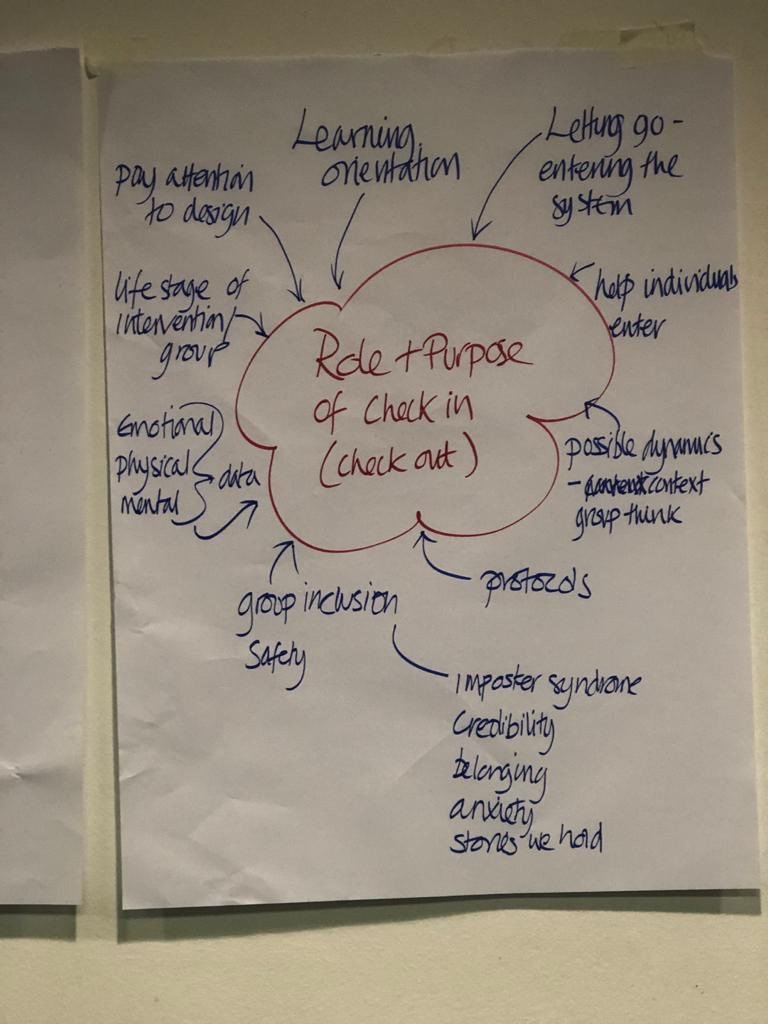 Learning
orientation
Letting go -
entering the
system
pay attention
to design
life stage of
intervention/
group
help individuals
enter
Role + Purpose
of Check in
(check out)
Emotional
physical
mental
data
possible dynamics
- context
group think
group inclusion
Safety
protocols
imposter syndrome
Credibility
belonging
anxiety
stories we hold